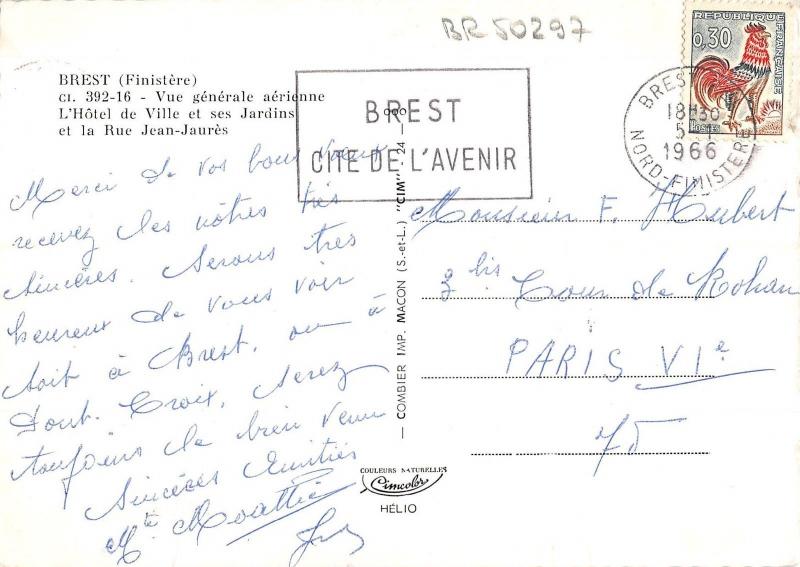 BR 50297
BREST (Finistère)
CI. 392-16 - Vue générale aérienne
L'Hôtel de Ville et ses Jardins
et la Rue Jean-Jaurès
BREST
CITE DE L'AVENIR
REPUBLIQUE FRANÇAISE
0,30
POSTES
BREST
18H30
5 - 1
1966
NORD-FINISTERE
Merci de vos bons voeux
recevez les nôtres très
sincères. Serons très
heureux de vous voir
soit à Brest, ou à
Pont. Croix, serez
toujours le bien venu
Sincères Amitiés
Monsieur F. Hubert
3 bis Cour de Rohan
PARIS VIe
75
— COMBIER IMP. MACON (S.-et-L.) "CIM" - 24 —
COULEURS NATURELLES
Cimcolor
HÉLIO